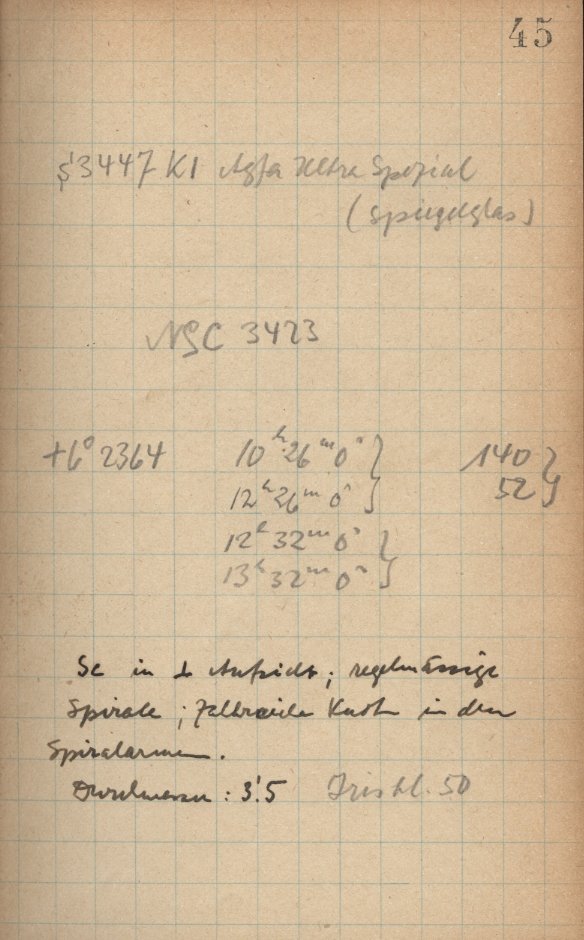 45
S 3447 K1 Agfa Ultra Spezial
(Spiegelglas)
NGC 3423
+6° 2364 10ʰ 26ᵐ 0ˢ } 140 }
12ʰ 26ᵐ 0ˢ } 52 }
12ʰ 32ᵐ 0ˢ }
13ʰ 32ᵐ 0ˢ }
Sc in ⊥ Aufsicht; regelmässige
Spirale; zahlreiche Knoten in den
Spiralarmen.
Durchmesser: 3'.5 Irisbl. 50